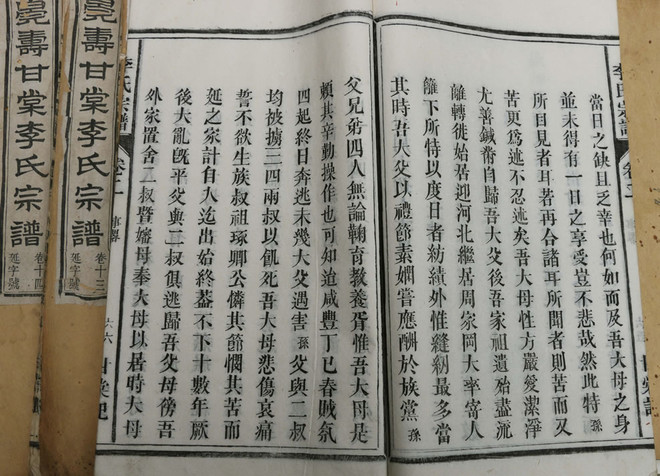 當日之缺且乏幸也何如而及吾大母之身
並未得有一日之享受豈不悲哉然此特孫
所目見者耳若再合諸耳所聞者則苦而又
苦更爲述不忍述矣吾大母性方嚴愛潔淨
尤善鍼黹自歸吾大父後吾家祖遺殆盡流
離轉徙始居迎河北繼居周家岡大率寄人
籬下所恃以度日者紡績外惟縫紉最多當
其時吾大父以禮節素嫻嘗應酬於族黨孫
父兄弟四人無論鞠育教養胥惟吾大母是
賴其辛勤操作也可知迨咸豐丁巳春賊氛
四起終日奔逃未幾大父遇害孫父與二叔
均被擄三四兩叔以飢死吾大母悲傷哀痛
誓不欲生族叔祖琢卿公憐其節憫其苦而
延之家計自大迄出始終蓋不下十數年厥
後大亂旣平父與二叔俱逃歸吾父母傍吾
外家置舍二叔暨嬸母奉大母以居時大母
李氏宗譜
卷十二
事畧
六六
甘棠祀
李氏宗譜
卷十二
甘棠
壽甘棠李氏宗譜
卷十三
延字號
壽甘棠李氏宗譜
卷十四
延字號